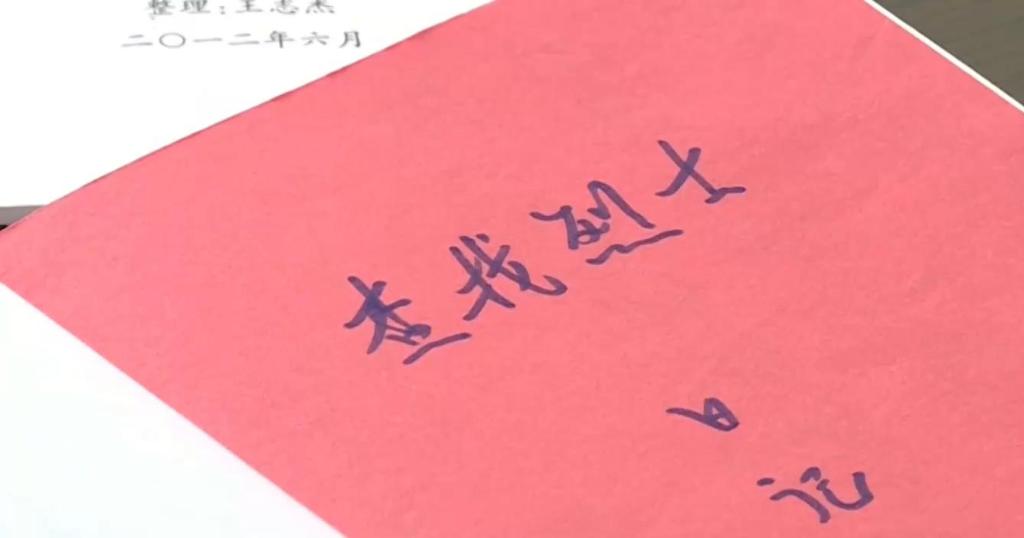 整理:王志杰
二〇一二年六月
查找烈士
日
记